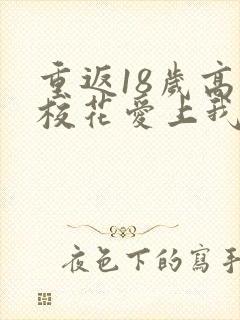 重返18歲高
校花愛上我
夜色下的寫手